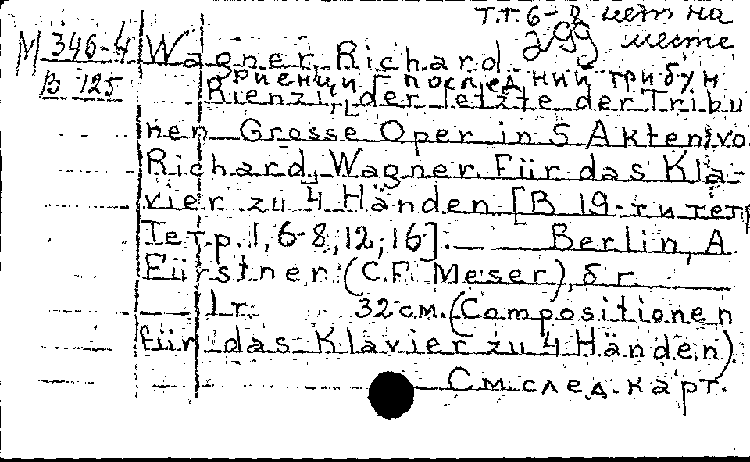 т.т. 6-8 нет на
299 месте
М 346-4
В 125
Wagner, Richard
Риенци последний трибун
Rienzi, der letzte der Tribu
nen Grosse Oper in 5 Akten, vo
Richard Wagner. Für das Kla-
vier zu 4 Händen [В 19-ти тетр
Тетр. 1, 6-8, 12, 16]. Berlin, A.
Fürstner (C.F. Meser), б. г.
1 г. 32 см. (Compositionen
für das Klavier zu 4 Händen)
См. след. карт.